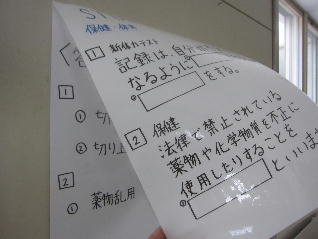 保健
1 新体力テスト
記録は、自分
なるように
をする。
2 保健
法律で禁止されている
薬物や化学物質を不正に
使用したりすることを
といいま
1
① 切
② 切り上
2
① 薬物乱用